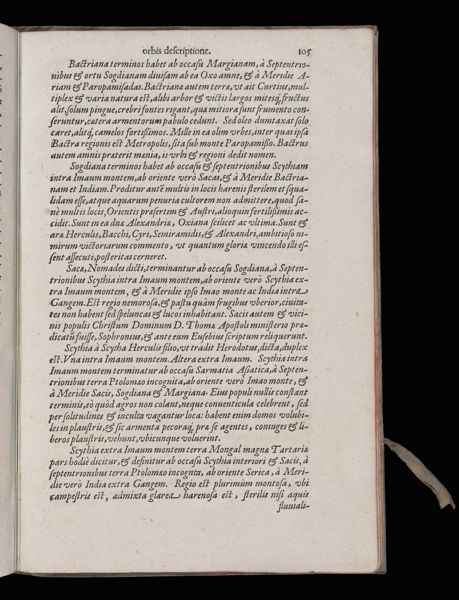 orbis descriptione. 105
Bactriana terminos habet ab occasu Margianam, à Septentrio-
nibus & ortu Sogdianam diuisam ab ea Oxo amne, & à Meridie A-
riam & Paropamisadas. Bactriana autem terra, vt ait Curtius, mul-
tiplex & varia natura est, alibi arbor & victis largos mitesq́, fructus
alit, solum pingue, crebri fontes rigant, quæ mitiora sunt frumento con-
seruntur, catera armentorum pabulo cedunt. Sed oleo dumtaxat solo
caret, alitq́, camelos fortissimos. Mille in ea olim vrbes, inter quas ipsa
Bactra regionis est Metropolis, sita sub monte Paropamisso. Bactrus
autem amnis præterit mænia, is vrbi & regioni dedit nomen.
Sogdiana terminos habet ab occasu & septentrionibus Scythiam
intra Imaum montem, ab oriente verò Sacas, & à Meridie Bactria-
nam et Indiam. Proditur autē multis in locis harenis sterilem et squa-
lidam esse, atque aquarum penuria cultorem non admittere, quod sa-
nè multis locis, Orientis præsertim & Austri, alioquin fertilissimis ac-
cidit. Sunt in ea duæ Alexandriæ, Oxiana scilicet ac vltima. Sunt &
aræ Herculis, Bacchi, Cyri, Semiramidis, & Alexandri, ambitioso ni-
mirum victoriarum commento, vt quantum gloria vincendo illi es-
sent assecuti, posteritas cerneret.
Sacæ, Nomades dicti, terminantur ab occasu Sogdiana, à Septen-
trionibus Scythia intra Imaum montem, ab oriente verò Scythia ex-
tra Imaum montem, & à Meridie ipso Imao monte ac India intra
Gangem. Est regio nemorosa, & pastu quàm frugibus vberior, ciuita-
tes non habent sed speluncas & lucos inhabitant. Sacis autem & vici-
nis populis Christum Dominum D. Thomæ Apostoli ministerio præ-
dicatū fuisse, Sophronius, & ante eum Eusebius scriptum reliquerunt.
Scythia à Scytha Herculis filio, vt tradit Herodotus, dicta, duplex
est. Vna intra Imaum montem. Altera extra Imaum. Scythia intra
Imaum montem terminatur ab occasu Sarmatia Asiatica, à Septen-
trionibus terra Ptolomæo incognita, ab oriente verò Imao monte, &
à Meridie Sacis, Sogdiana & Margiana. Eius populi nullis constant
terminis, eò quòd agros non colant, neque conuenticula celebrent, sed
per solitudines & inculta vagantur loca: habent enim domos volubi-
les in plaustris, & sic armenta pecoraq́, præ se agentes, coniuges & li-
beros plaustris, vehunt, vbicunque voluerint.
Scythia extra Imaum montem terra Mongal magnæ Tartariæ
pars hodiè dicitur, & definitur ab occasu Scythia interiori & Sacis, à
septentrionibus terra Ptolomæo incognita, ab oriente Serica, à Meri-
die verò India extra Gangem. Regio est plurimùm montosa, vbi
campestris est, admixta glarea harenosa est, sterilis nisi aquis
fluuiali-